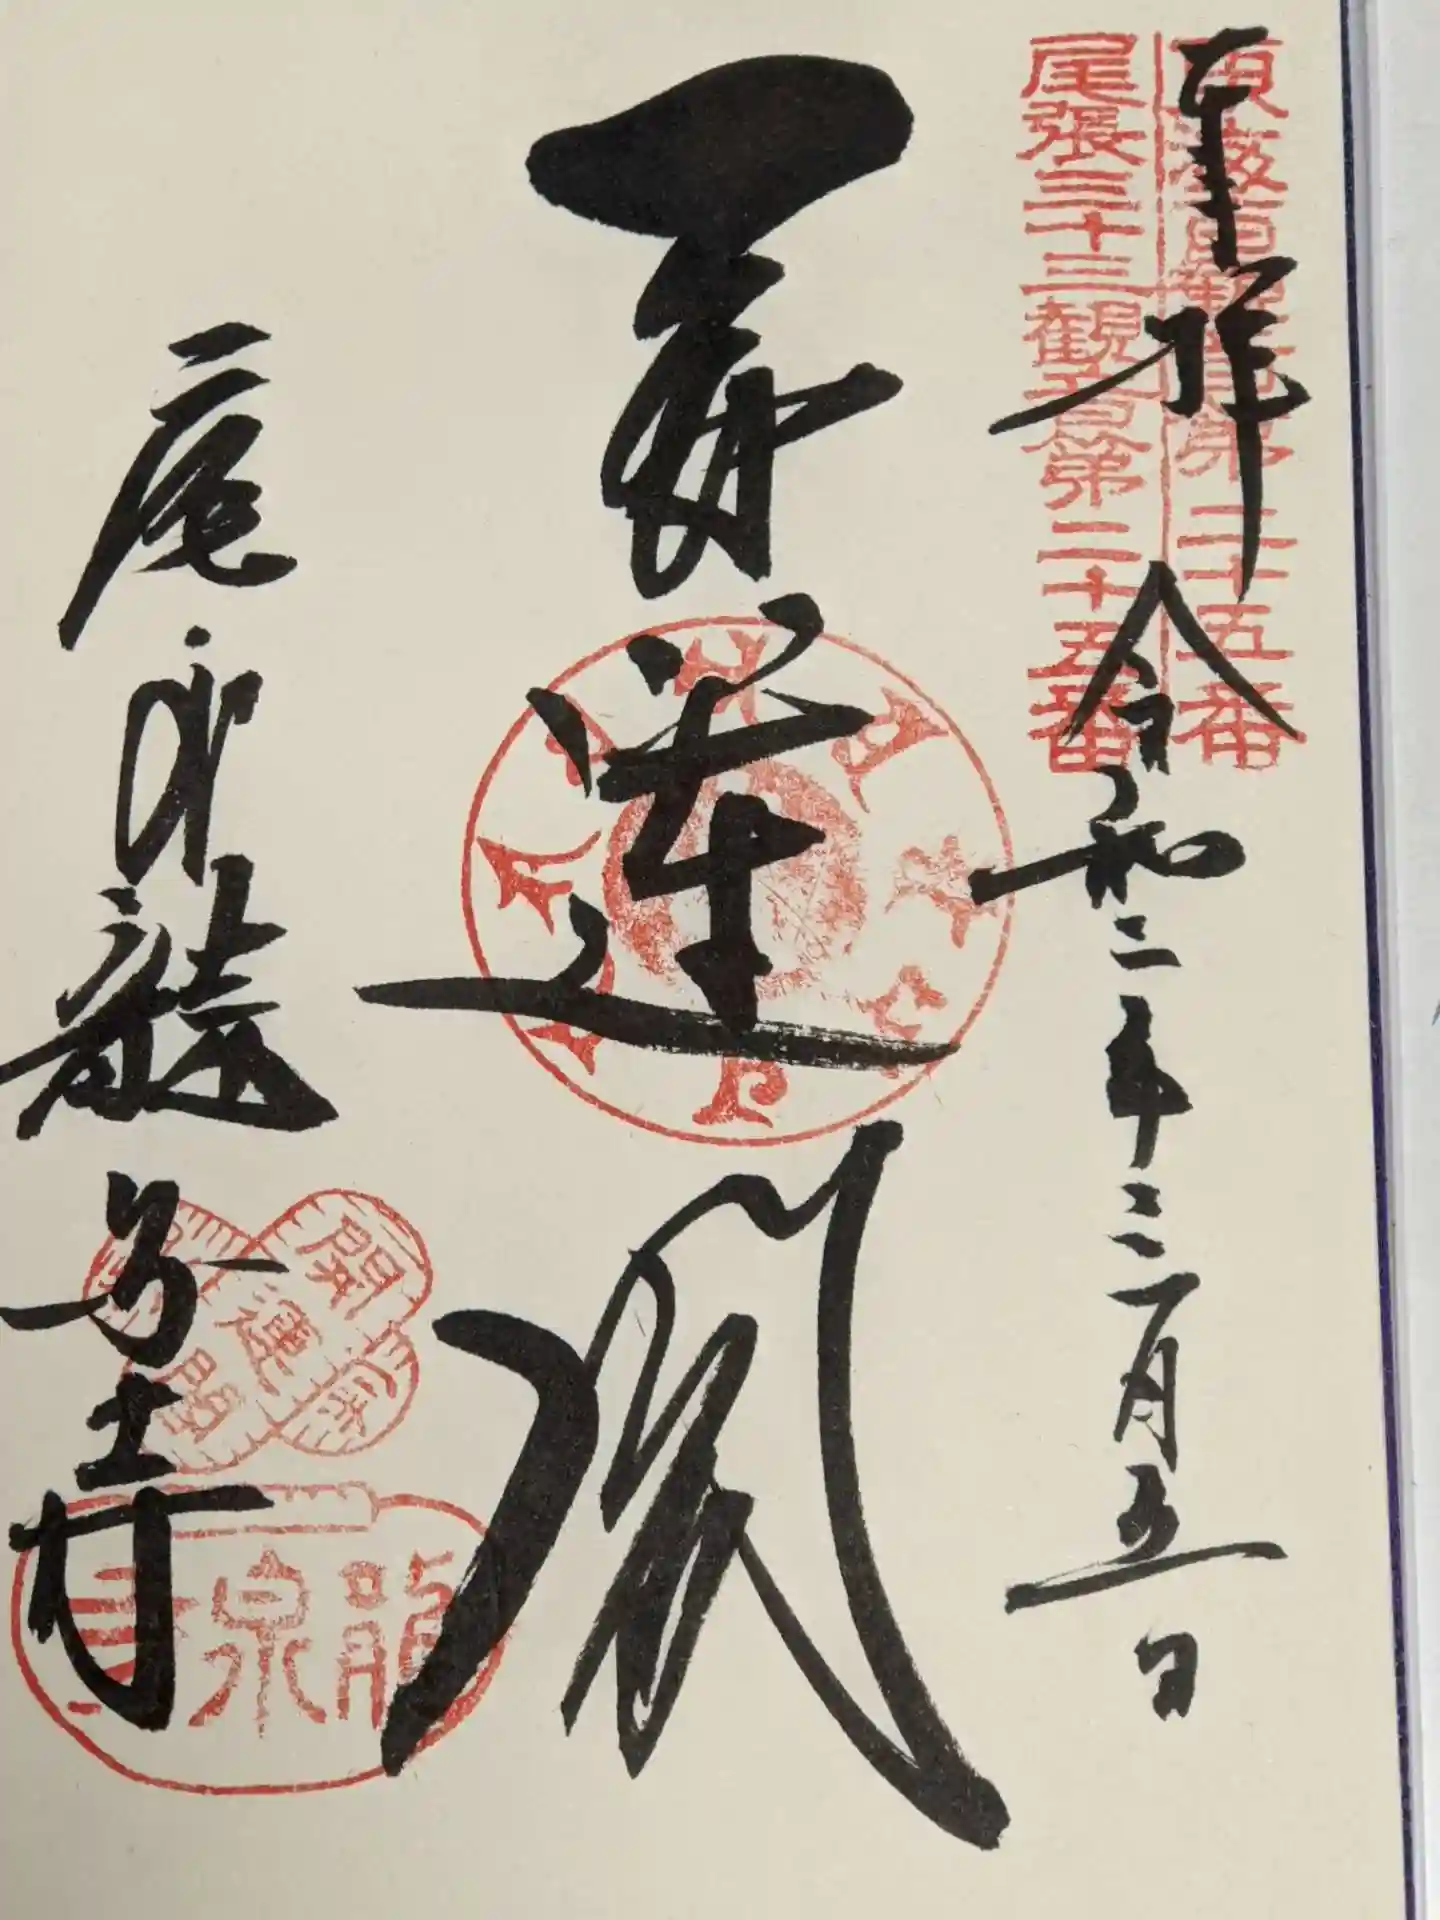 奉拝 令和二年三月五日
東海百観音第二十五番
尾張三十三観音第二十五番
開運閣
尾州龍泉寺
開運閣
龍泉寺